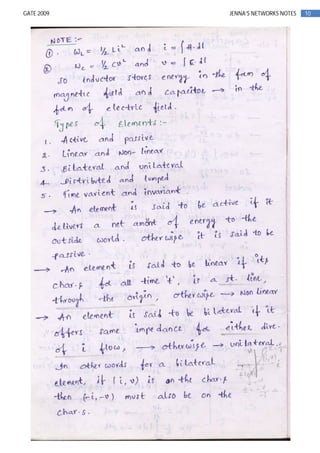 GATE 2009 JENNA'S NETWORKS NOTES 10
NOTE :-
① ω_L = ½ Li² and i = ∫H.dl
② ω_c = ½ CV² and v = ∫E.dl
so inductor stores energy in the form of
magnetic field and capacitor → in the
form of electric field.
Types of Elements :-
1. Active and passive
2. Linear and Non-linear
3. Bilateral and unilateral
4. Distributed and lumped
5. Time varient and invariant
→ An element is said to be active if it
delivers a net amount of energy to the
outside world. otherwise it is said to be
passive.
→ An element is said to be linear if its
char.s for all time 't', is a st. line,
through the origin, otherwise → Non linear
→ An element is said to be bilateral if it
offers same impedance for either dire.
of i flow, → otherwise → unilateral.
In other words for a bilateral
element, if (i,v) is on the char.s
then (-i,-v) must also be on the
char.s.